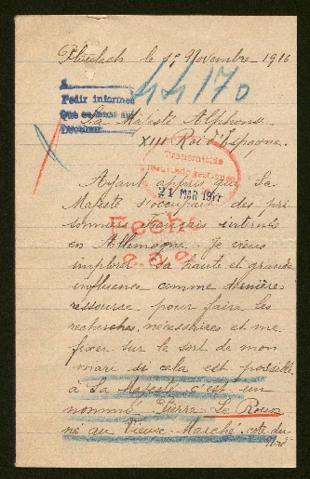 le 1er Novembre 1916
44170
A
Pedir informes
Que se
Sa Majesté Alphonse
XIII Roi d'Espagne.
21 MAR 1917
Ayant appris que Sa
Majesté s'occupait des pri
sonniers français internés
en Allemagne. Je viens
implorer Sa haute et grande
influence comme dernière
ressource pour faire les
recherches nécessaires et me
fixer sur le sort de mon
mari si cela est possible
à Sa Majesté c'est un
nommé Pierre Le Roux
né au Vieux-Marché, côte du
Nord